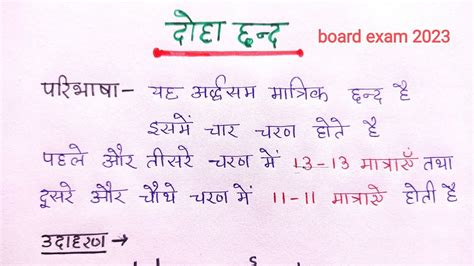 दोहा छन्द
board exam 2023
परिभाषा- यह अर्द्धसम मात्रिक छन्द है
इसमें चार चरण होते है
पहले और तीसरे चरण में 13-13 मात्राएँ तथा
दूसरे और चौथे चरण में 11-11 मात्राऐ होती है
उदाहरण →